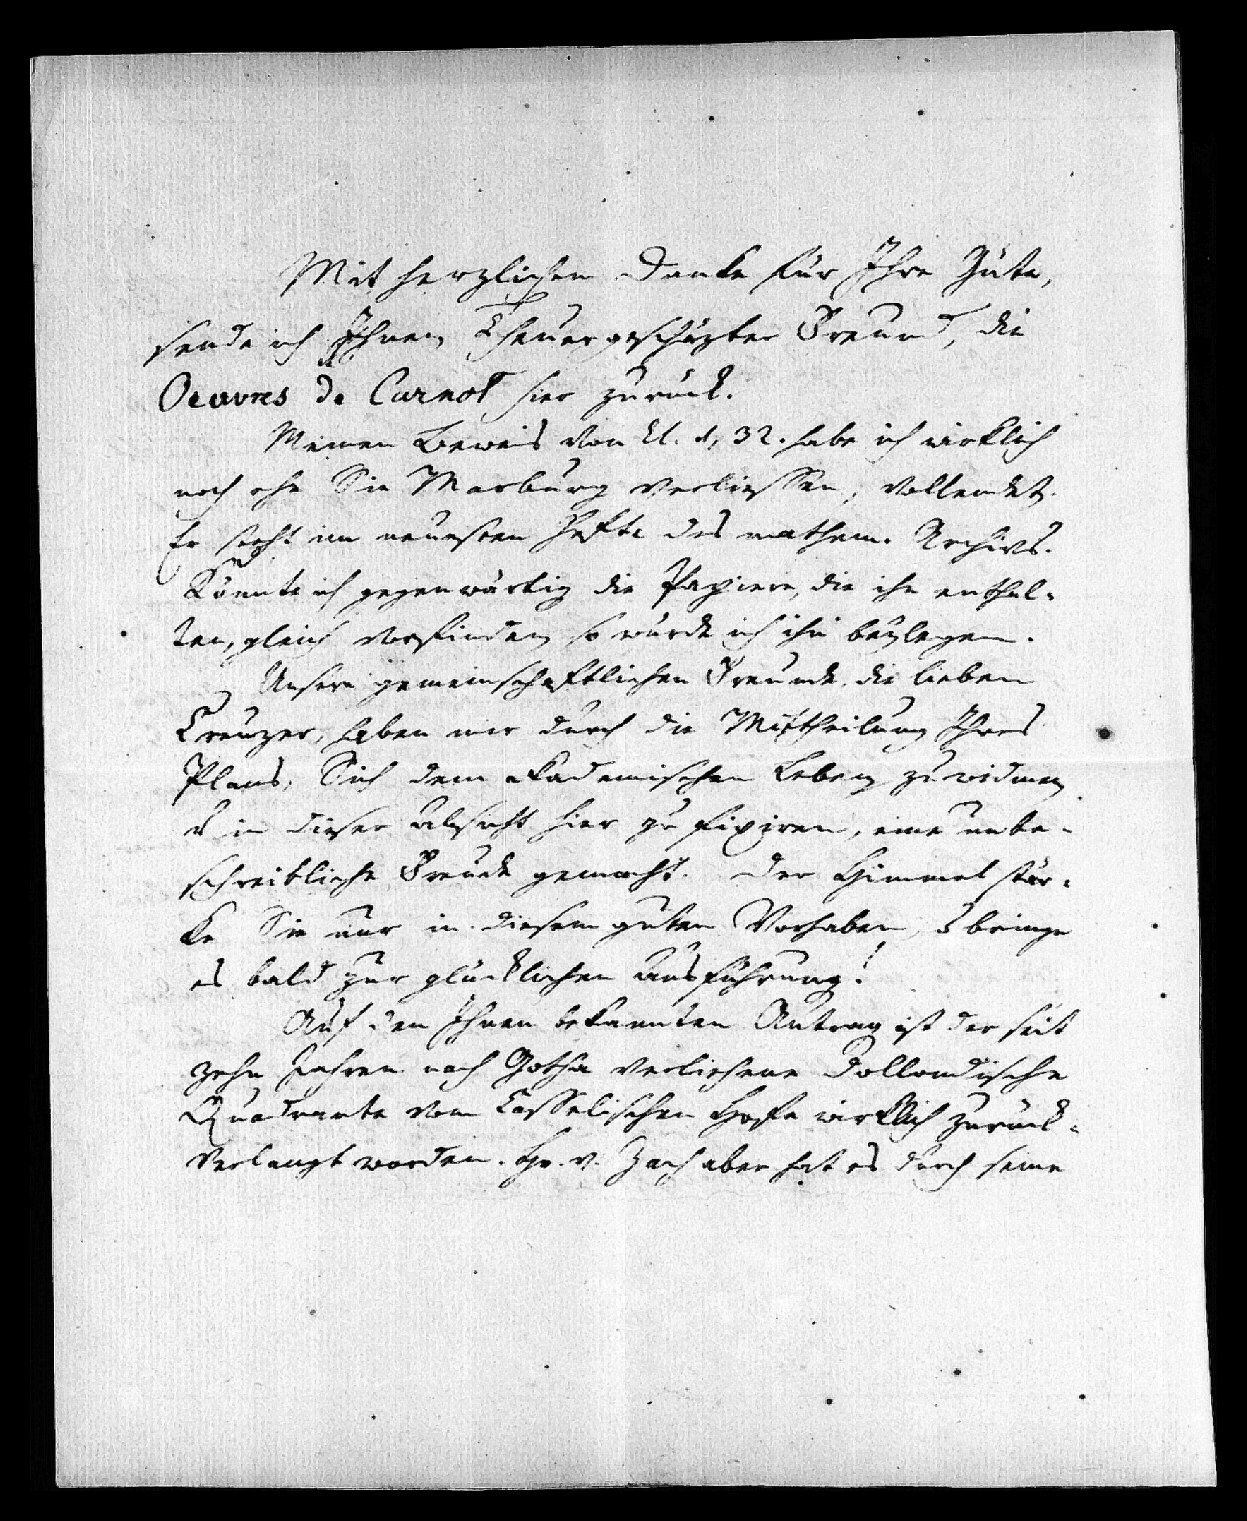 Mit herzlichem Danke für Ihre Güte,
sende ich Ihnen, Theuergeschäzter Freund, die
Oeuvres de Carnot hier zurück.
Meinen Beweis von El. 1, 32. habe ich wirklich
noch ehe Sie Marburg verliessen, vollendet.
Er steht im neuesten Hefte des mathem. Archivs.
Könnte ich gegenwärtig die Papiere, die ihn enthal-
ten, gleich vorfinden, so würde ich ihn beylegen.
Unsere gemeinschaftlichen Freunde, die lieben
Creuzer, haben mir durch die Mittheilung Ihres
Plans, Sich dem akademischen Leben zu widmen
u in dieser Absicht hier zu fixiren, eine unbe-
schreibliche Freude gemacht. Der Himmel stär-
ke Sie nur in diesem guten Vorhaben, u bringe
es bald zur glücklichen Ausführung!
Auf den Ihnen bekannten Antrag ist der seit
zehn Jahren nach Gotha verliehene Dollondische
Quadrante vom Casselischen Hofe wirklich zurück-
verlangt worden. Hr. v. Zach aber hat es durch seine